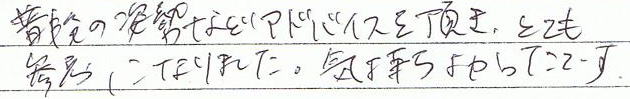 普段の姿勢などアドバイスを頂き、とても
参考になりました。気持ちよかったです。